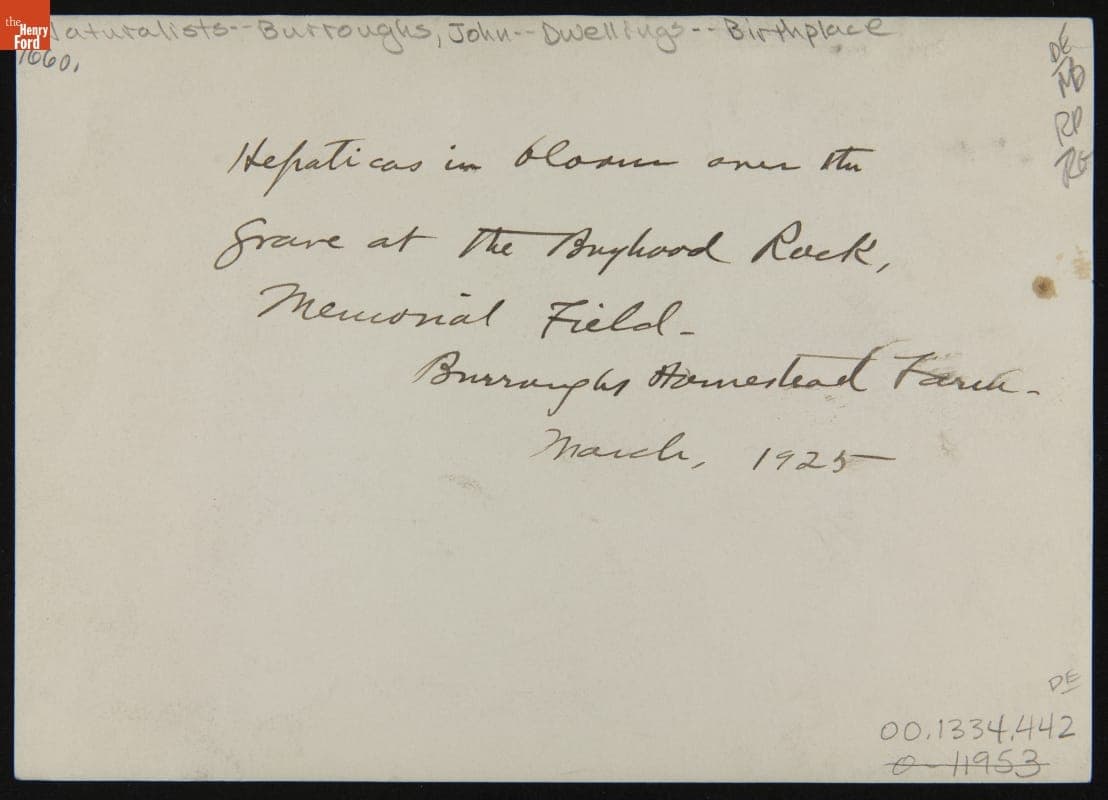 the
Henry
Ford
Naturalists--Burroughs, John--Dwellings--Birthplace
1660.
DE
MD
RP
RE
Hepaticas in bloom over the
Grave at the Boyhood Rock,
Memorial Field-
Burroughs Homestead Farm-
March, 1925
DE
00.1334.442
0-11953